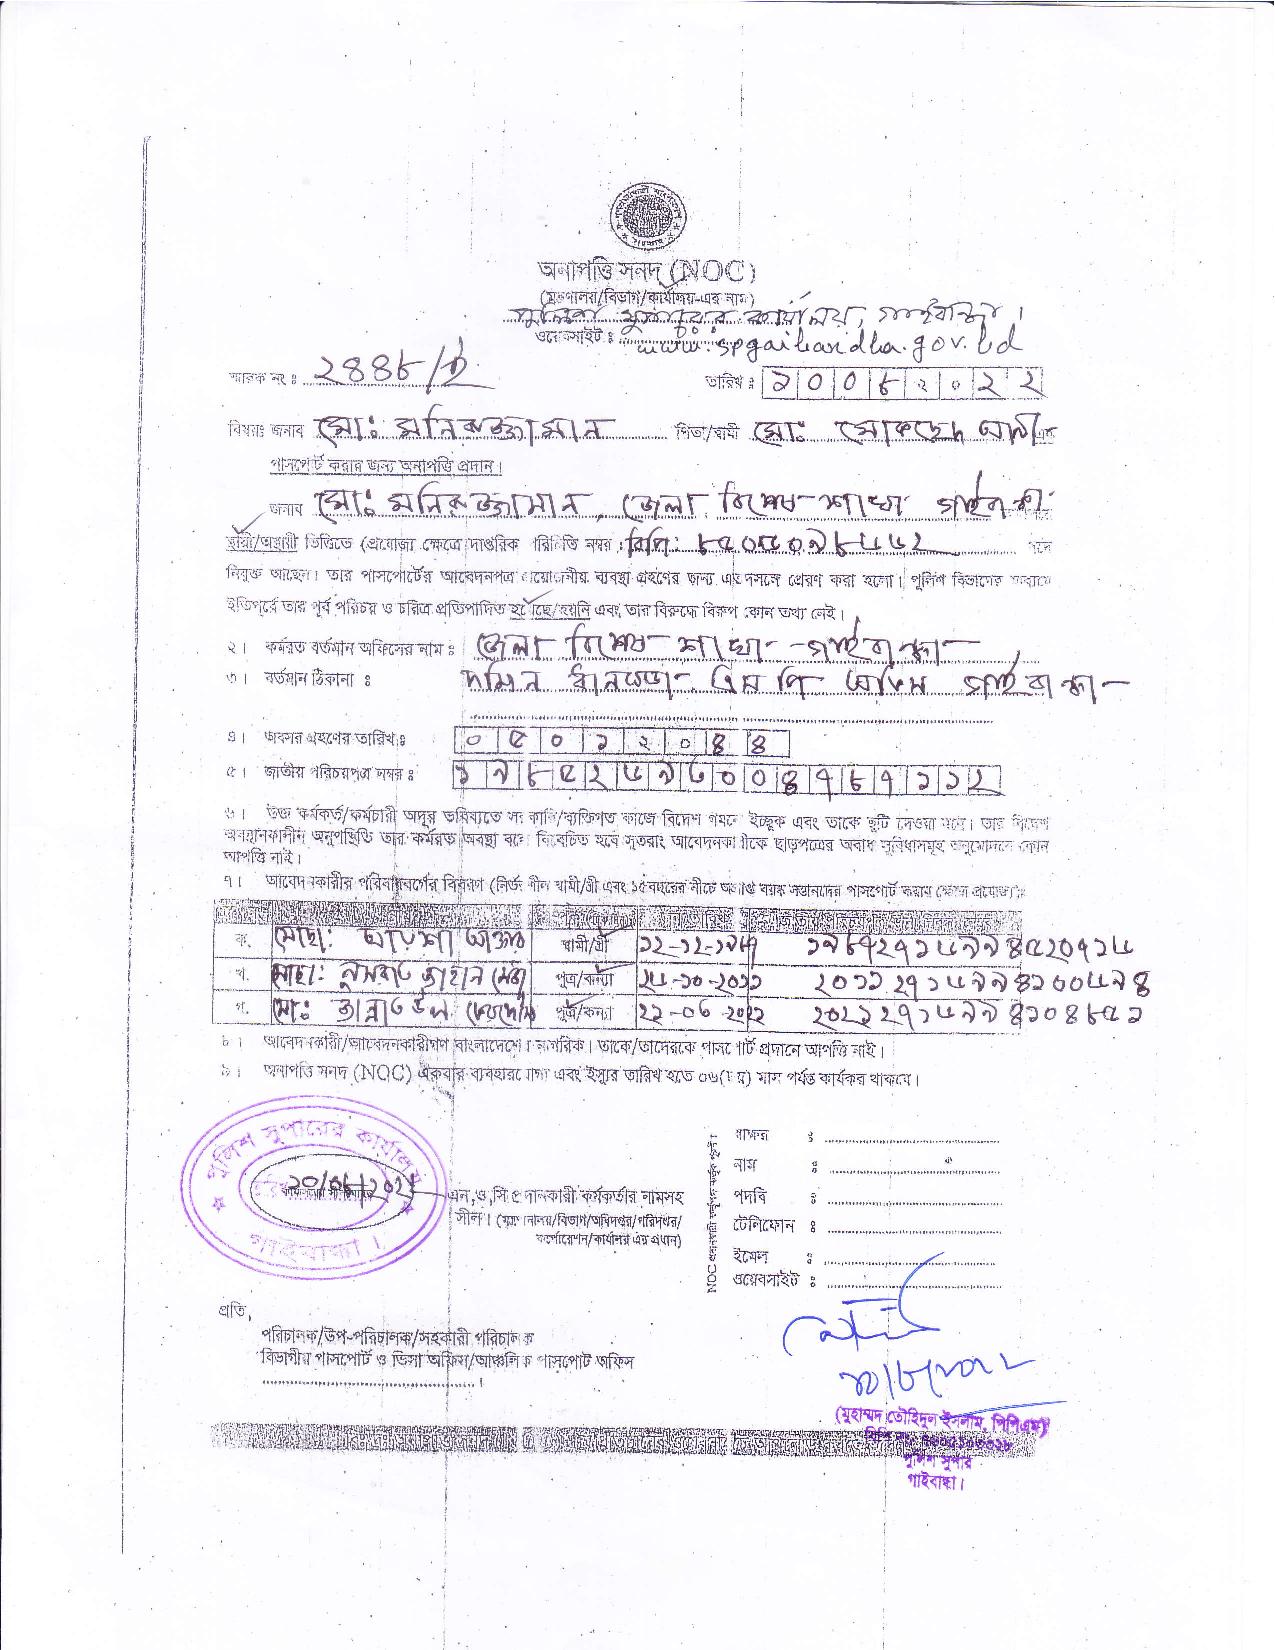 অনাপত্তি সনদ (NOC)
(মন্ত্রণালয়/বিভাগ/কার্যালয়-এর নাম)
পুলিশ সুপারের কার্যালয়, গাইবান্ধা।
ওয়েবসাইট ঃ www.spgaibandha.gov.bd
স্মারক নং ঃ ২৪৪৮/
তারিখ ঃ ১০০৮২০২২
বিষয়ঃ জনাব মোঃ মনিরুজ্জামান পিতা/স্বামী মোঃ আলী এর
পাসপোর্ট করার জন্য অনাপত্তি প্রদান।
জনাব মোঃ মনিরুজ্জামান, জেলা বিশেষ শাখা গাইবান্ধা
স্থায়ী/অস্থায়ী ভিত্তিতে (প্রযোজ্য ক্ষেত্রে দাপ্তরিক পরিচিতি নম্বর : বিপি: ৮৫০৫০৯৮৬৬২ পদে
নিযুক্ত আছেন। তার পাসপোর্টের আবেদনপত্র প্রয়োজনীয় ব্যবস্থা গ্রহণের জন্য এতদসঙ্গে প্রেরণ করা হলো। পুলিশ বিভাগের মাধ্যমে
ইতিপূর্বে তার পূর্ব পরিচয় ও চরিত্র প্রতিপাদিত হয়েছে/হয়নি এবং তার বিরুদ্ধে বিরুপ কোন তথ্য নেই।
২। কর্মরত বর্তমান অফিসের নাম ঃ জেলা বিশেষ শাখা - গাইবান্ধা
৩। বর্তমান ঠিকানা ঃ এম পি অফিস গাইবান্ধা
৪। অবসর গ্রহণের তারিখ ঃ ০৫০১২০৪৪
৫। জাতীয় পরিচয়পত্র নম্বর ঃ ১৯৮৫২৬৯৬০০৪৭৮৭১১২
৬। উক্ত কর্মকর্তা/কর্মচারী অদূর ভবিষ্যতে সরকারি/ব্যক্তিগত কাজে বিদেশ গমনে ইচ্ছুক এবং তাকে ছুটি দেওয়া যাবে। তার বিদেশ
অবস্থানকালীন অনুপস্থিতি তার কর্মরত অবস্থা বলে বিবেচিত হবে সুতরাং আবেদনকারীকে ছাড়পত্রের অবাধ সুবিধাসমূহ অনুমোদনে কোন
আপত্তি নাই।
৭। আবেদনকারীর পরিবারবর্গের বিবরণ (নির্ভরশীল স্বামী/স্ত্রী এবং ১৫বছরের নীচে অপ্রাপ্ত বয়স্ক সন্তানদের পাসপোর্ট করার ক্ষেত্রে প্রযোজ্য)ঃ
ক. মোছা: আয়েশা আক্তার স্বামী/স্ত্রী ১২-১২-১৯৮৭ ১৯৮৭২৭১৬৯৯৪৫২০৭১৬
খ. মোছা: নুসরাত জাহান পুত্র/কন্যা ২৬-১০-২০১১ ২০১১২৭১৬৯৯৪১৩০৬৯৪
গ. মো: জান্নাতউল ফেরদৌস পুত্র/কন্যা ২০২১২৭১৬৯৯৪১০৪৮৫১
৮। আবেদনকারী/আবেদনকারীগণ বাংলাদেশের নাগরিক। তাকে/তাদেরকে পাসপোর্ট প্রদানে আপত্তি নাই।
৯। অনাপত্তি সনদ (NOC) একবার ব্যবহারযোগ্য এবং ইস্যুর তারিখ হতে ০৬(ছয়) মাস পর্যন্ত কার্যকর থাকবে।
পুলিশ সুপারের কার্যালয়
গাইবান্ধা।
এন,ও,সি প্রদানকারী কর্মকর্তার নামসহ
সীল। (মন্ত্রণালয়/বিভাগ/অধিদপ্তর/পরিদপ্তর/
কর্পোরেশন/কার্যালয় এর প্রধান)
স্বাক্ষর ঃ
নাম ঃ
পদবি ঃ
টেলিফোন ঃ
ইমেল ঃ
ওয়েবসাইট ঃ
প্রতি,
পরিচালক/উপ-পরিচালক/সহকারী পরিচালক
বিভাগীয় পাসপোর্ট ও ভিসা অফিস/আঞ্চলিক পাসপোর্ট অফিস
(মুহাম্মদ তৌহিদুল ইসলাম, পিপিএম)
পুলিশ সুপার
গাইবান্ধা।